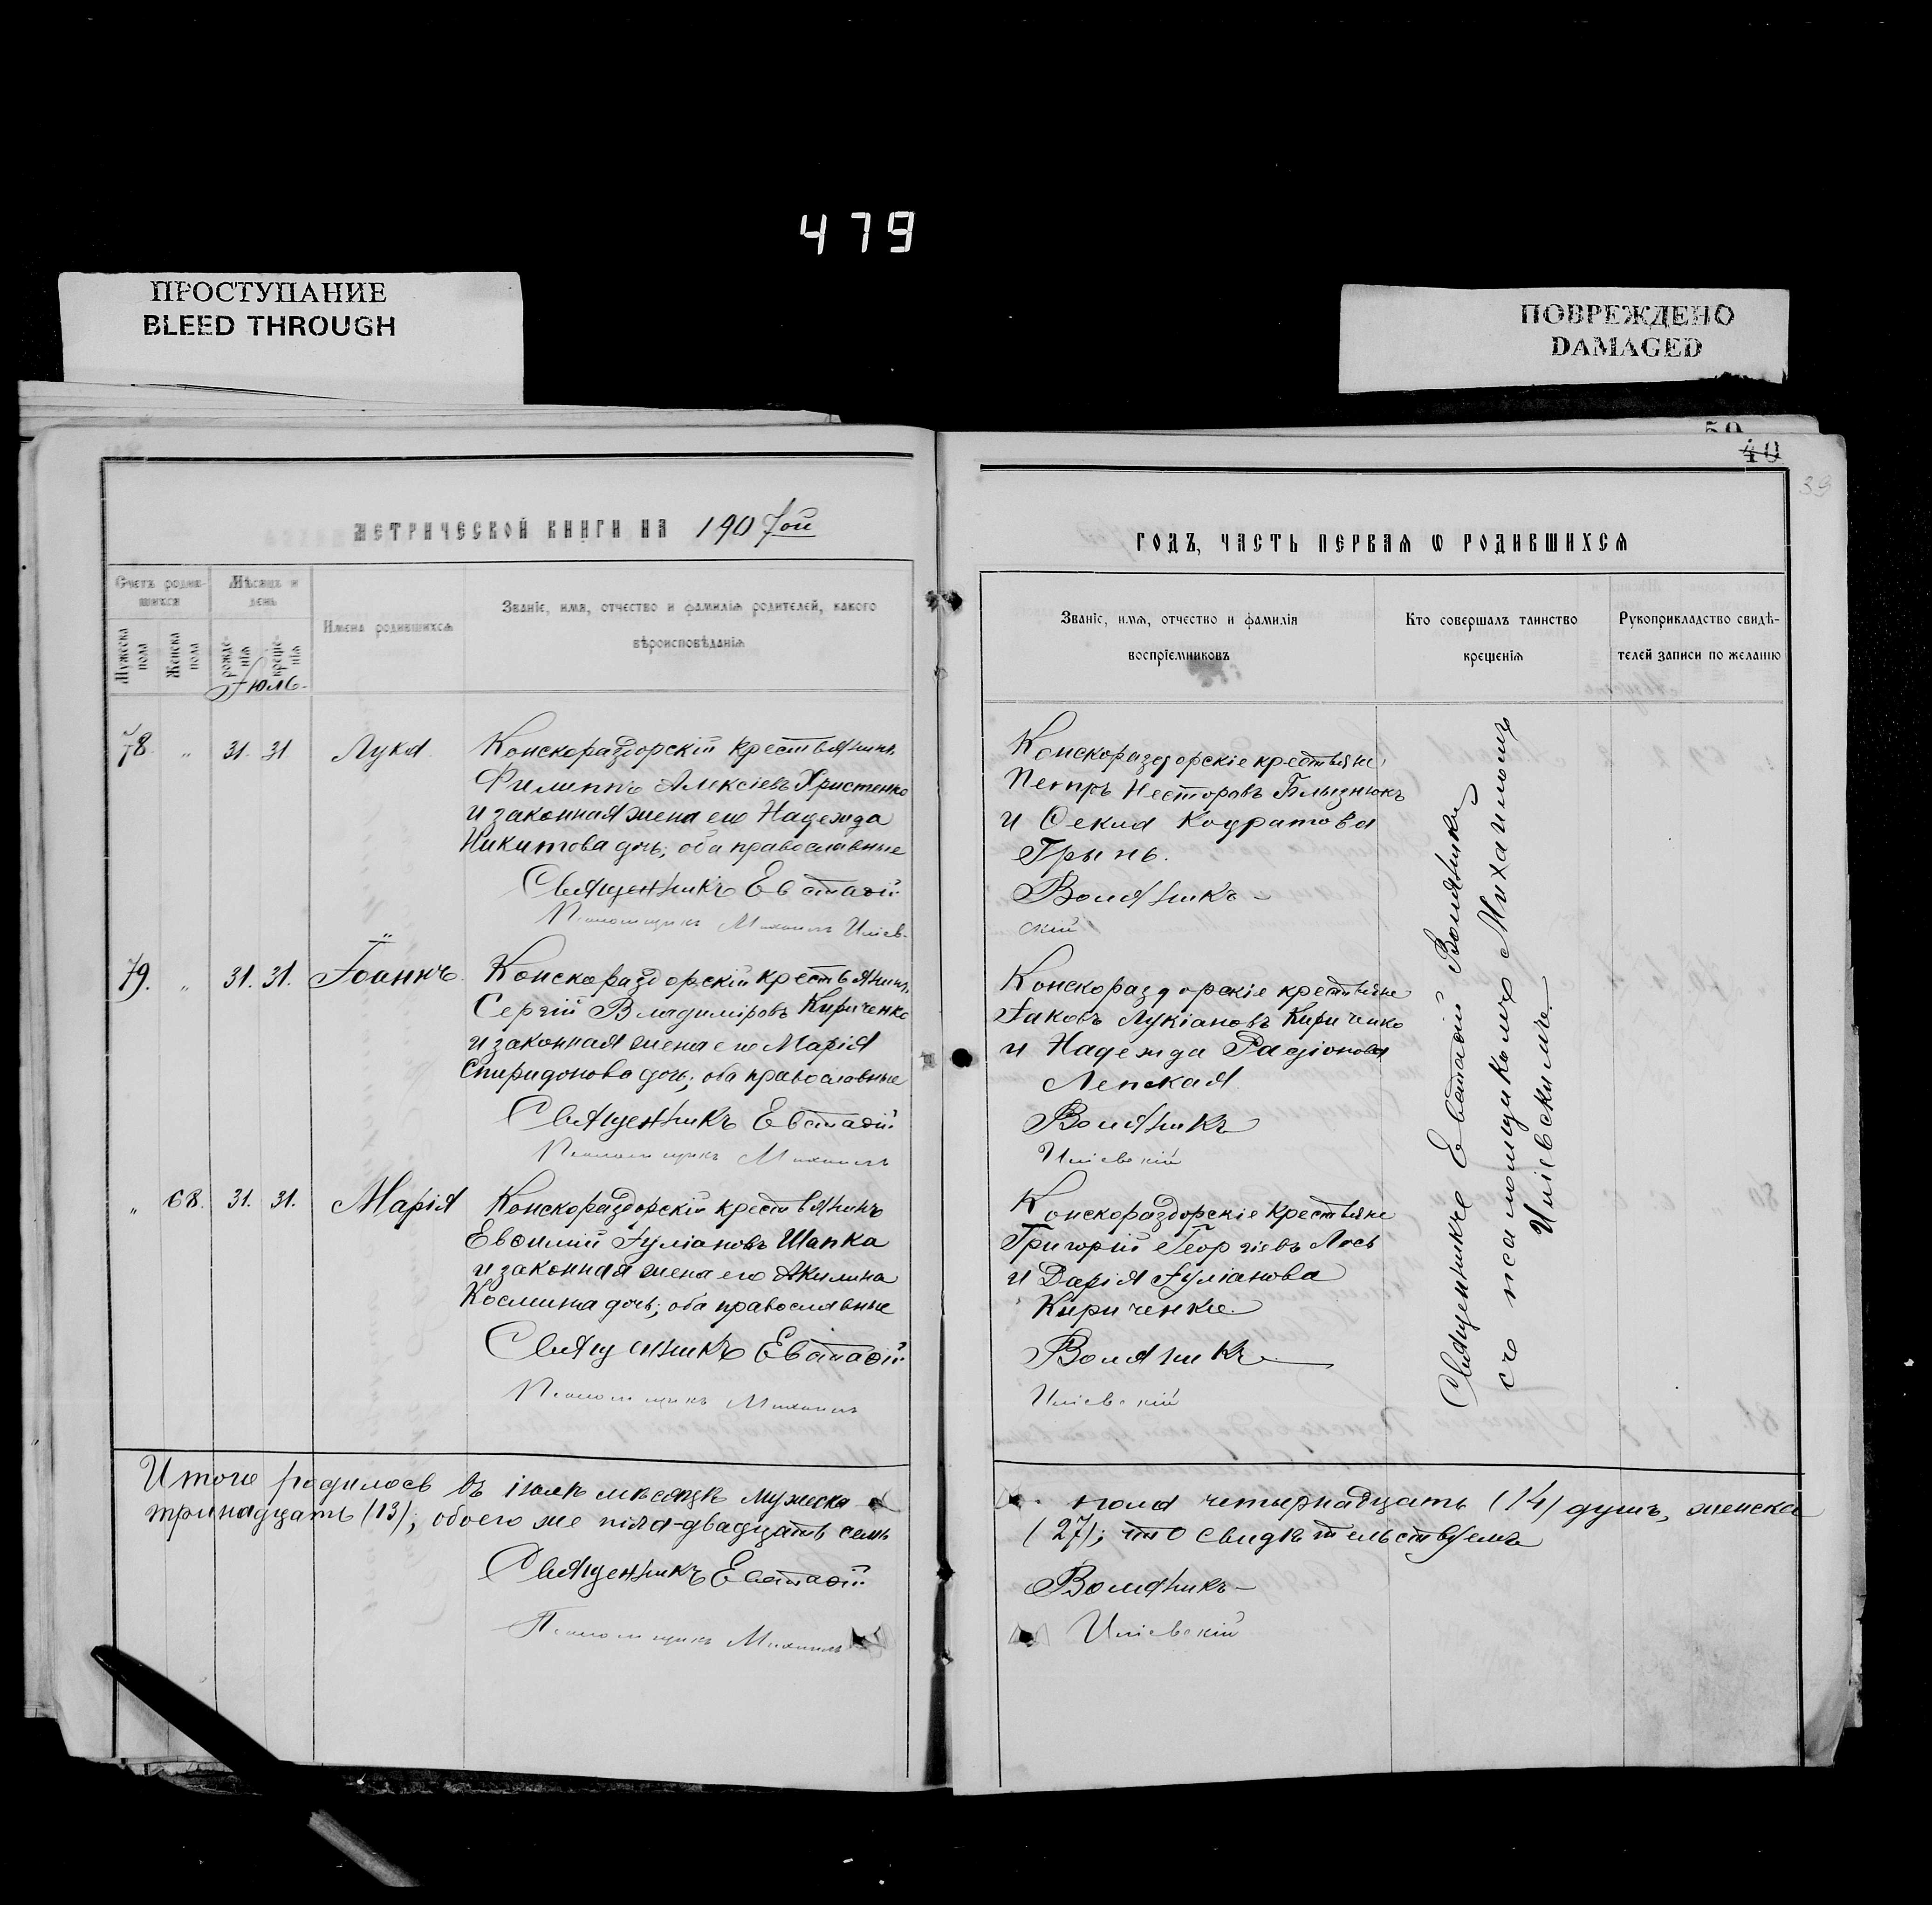 479
ПРОСТУПАНИЕ
BLEED THROUGH
ПОВРЕЖДЕНО
DAMAGED
50
40
39
МЕТРИЧЕСКОЙ КНИГИ НА 1907ой
Счетъ родив-
шихся
Мѣсяцъ и
день
Мужеска
пола
Женска
пола
рожде-
нія
креще-
нія
Имена родившихся
Званіе, имя, отчество и фамилія родителей, какого
вѣроисповѣданія
Іюль
78. " 31. 31 Лука
Конскораздорскій крестьянинъ
Филиппъ Алексіевъ Христенко
и законная жена его Надежда
Никитова дочь; оба православные
Священникъ Евстаѳій
Псаломщикъ Михаилъ Иліев-
79. " 31. 31. Іоаннъ
Конскораздорскій крестьянинъ
Сергій Владиміровъ Кириченко
и законная жена его Марія
Спиридонова дочь; оба православные
Священникъ Евстаѳій
Псаломщикъ Михаилъ
" 68. 31. 31. Марія
Конскораздорскій крестьянинъ
Евѳимій Іуліановъ Шапка
и законная жена его Акилина
Космина дочь; оба православные
Священникъ Евстаѳій
Псаломщикъ Михаилъ
Итого родилось въ іюлѣ мѣсяцѣ мужеска
тринадцать (13); обоего же пола-двадцать семь
Священникъ Евстаѳій
Псаломщикъ Михаилъ
ГОДЪ, ЧАСТЬ ПЕРВАЯ Ѡ РОДИВШИХСЯ
Званіе, имя, отчество и фамилія
воспріемниковъ
Кто совершалъ таинство
крещенія
Рукоприкладство свидѣ-
телей записи по желанію
Конскораздорскіе крестьяне
Петръ Несторовъ Близнюкъ
и Ѳекла Кодратова
Грынь.
Воляникъ-
скій
Конскораздорскіе крестьяне
Іаковъ Лукіановъ Кириченко
и Надежда Радіонова
Лепская
Воляникъ
Иліевскій
Конскораздорскіе крестьяне
Григорій Георгіевъ Лось
и Дарія Іуліанова
Кириченко.
Воляникъ
Иліевскій
Священникъ Евстаѳій Воляникъ
съ псаломщикомъ Михаиломъ
Иліевскимъ
пола четырнадцать (14) душъ, женска
(27); что свидѣтельствуемъ
Воляникъ-
Иліевскій